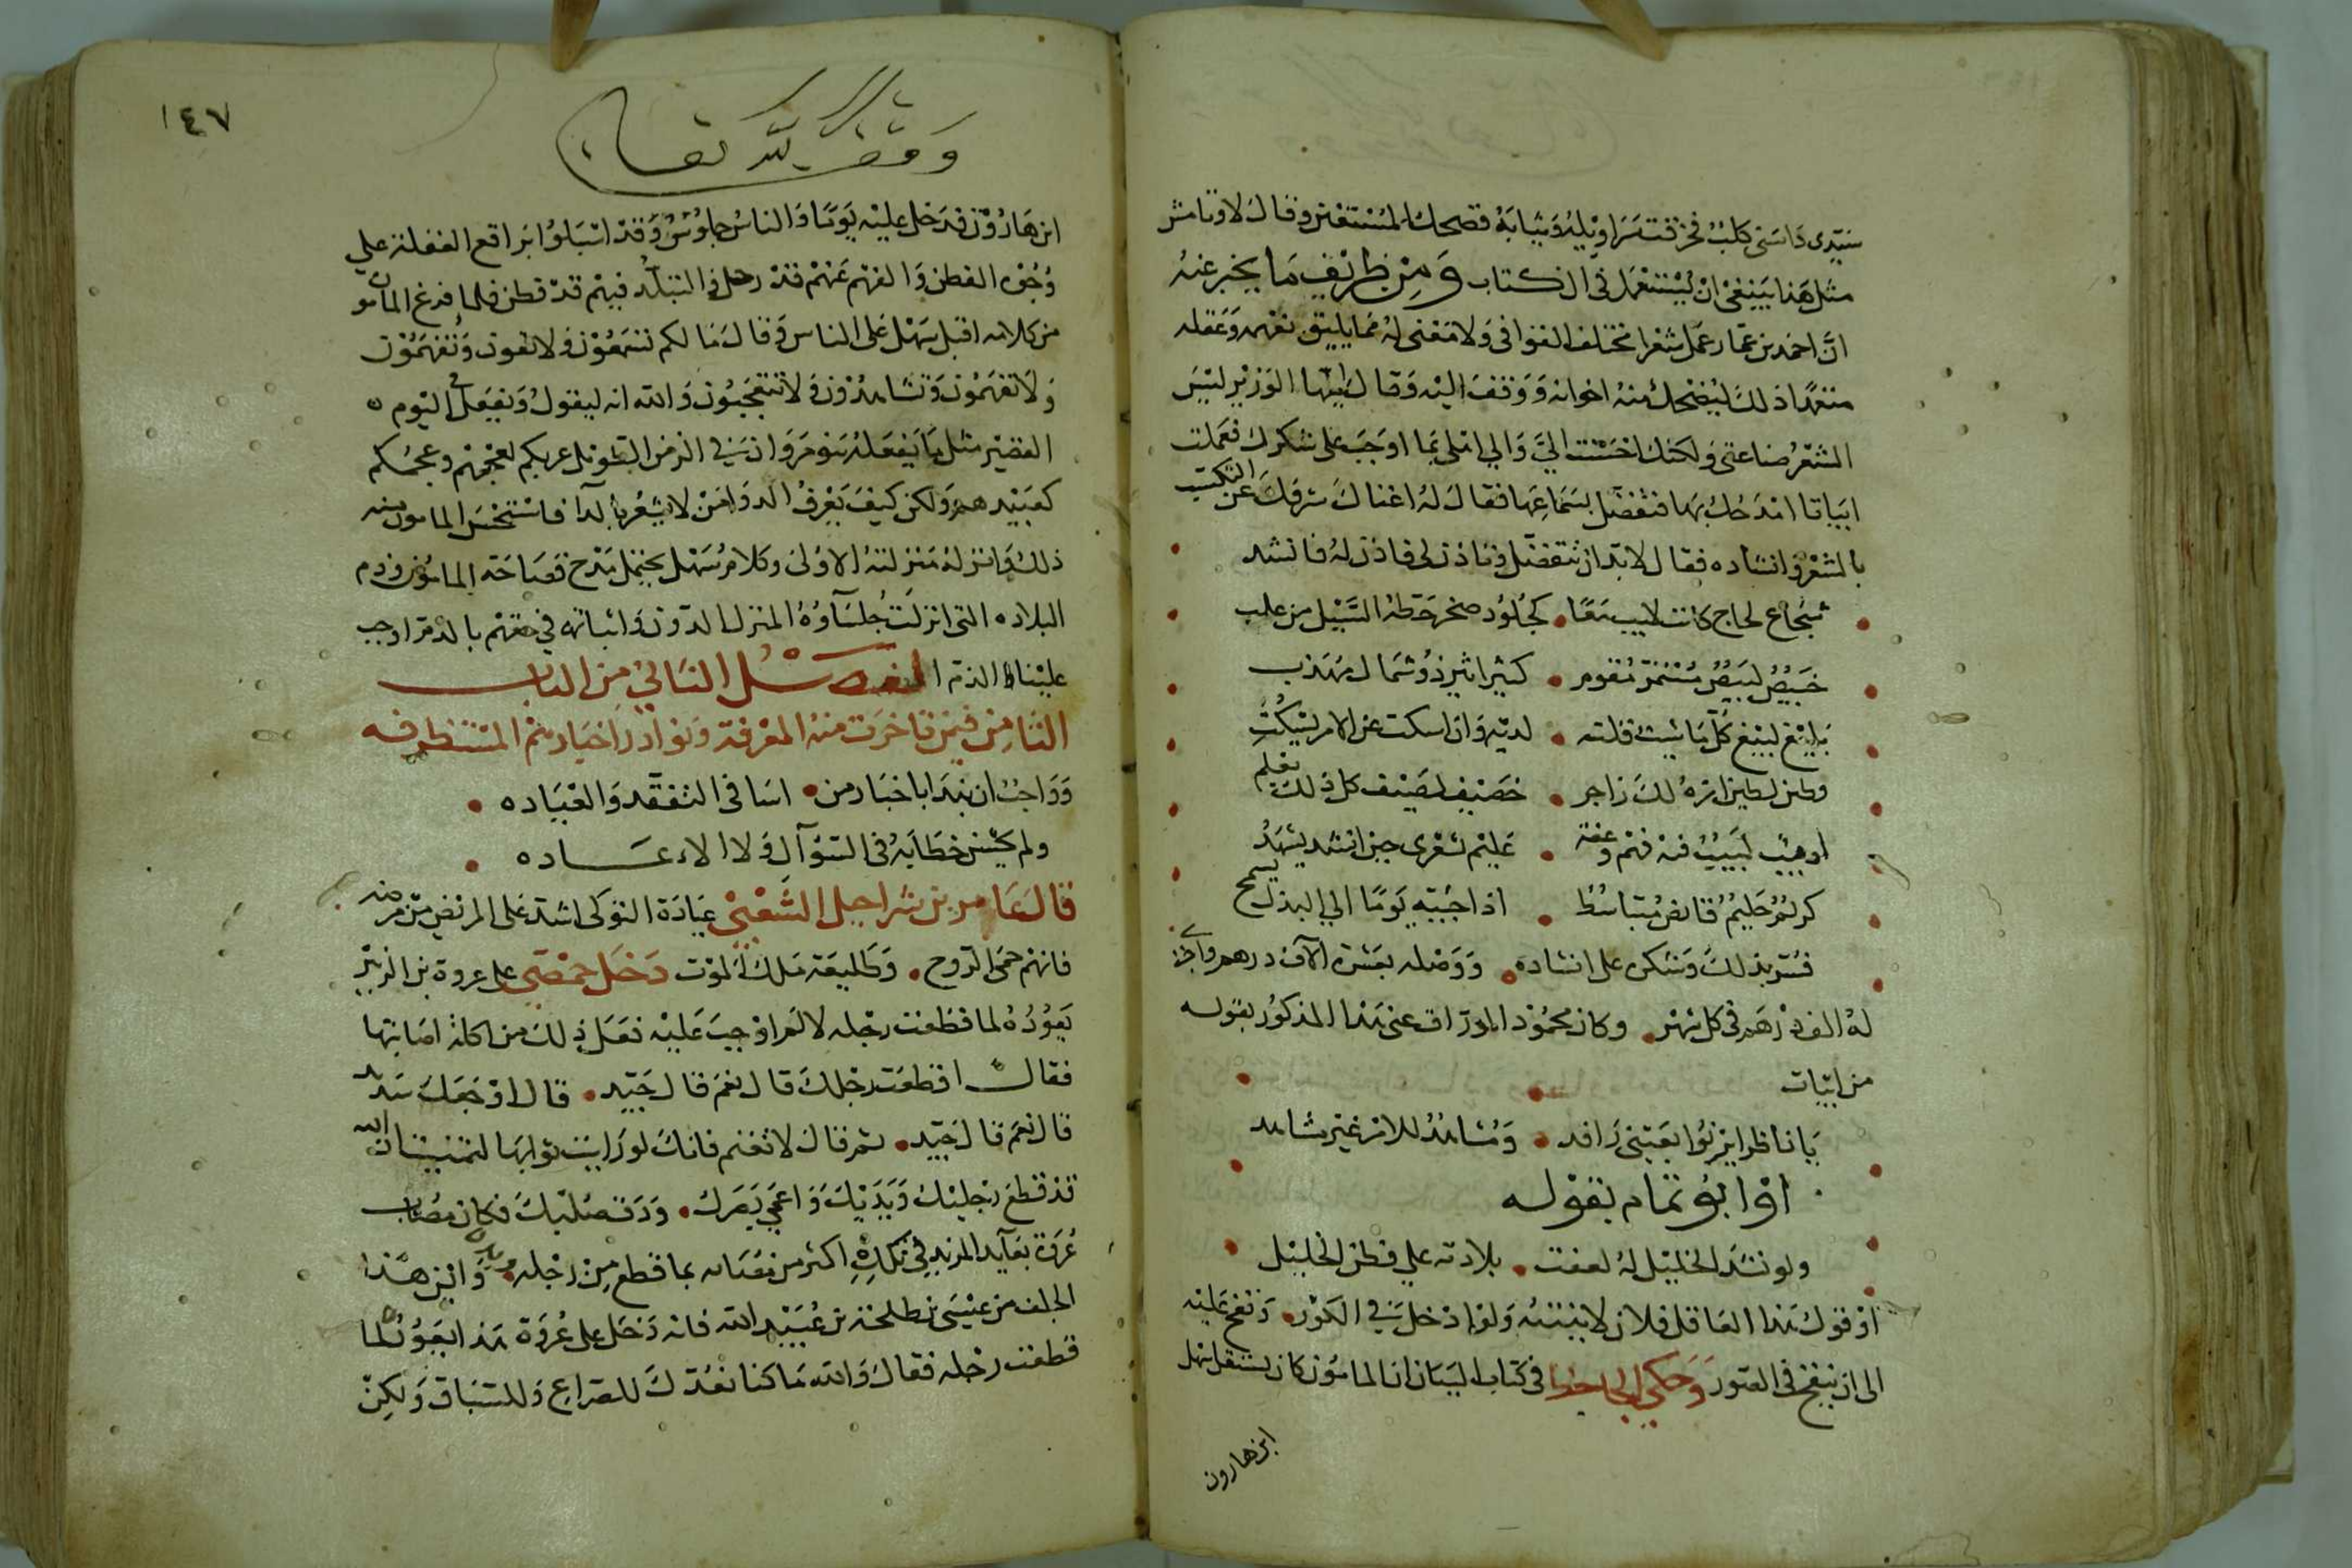 سيدى داسنى كلب فخرقت سراويله وثيابه فضحك المستعين وقال لاوتامش
مثل هذا ينبغى ان يستعمل فى الكتاب ومن ظريف ما يخبر عنه
ان احمد بن عمار عمل شعرا مختلف القوافى ولا معنى له مما يليق بفهمه وعقله
متعمدا ذلك ليضحك منه اخوانه ووقف اليه وقال ايها الوزير ليس
الشعر صناعتى ولكنك احسنت الي والي اهلى بما اوجب على شكرك فعملت
ابياتا امتدحك بها فتفضل بسماعها فقال له اغناك شرفك عن التكسب
بالشعر وانشاده فقال لابد ان تتفضل وتاذن لى فاذن له فانشد
شجاع لجاج كاتب لابيب معا كجلمود صخر حطه السيل من عل
خبيص لبيص مستمر مقوم كثير اثير ذو شمال مهذب
بليغ لبيغ كل ما شيت قلته لديه وان اسكت عن الامر يسكت
وطن لطين امره لك زاجر خصيف لصيف كل ذلك يعلم
اديب لبيب فيه فهم وعفة عليم بشعرى حين انشد يشهد
كريم حليم قابض متباسط اذا جئته يوما الي البذل يسمح
فسر بذلك وشكره على انشاده ووصله بعشرة الآف درهم واجرى
له الف درهم فى كل شهر وكان محمود الوراق عنى هذا المذكور بقوله
من ابيات
يا ناظرا يرنو بعينى راقد ومشاهد للامر غير مشاهد
او ابو تمام بقوله
ولو نشد الخليل له لعفت بلادته علي فطن الخليل
او قول هذا العاقل فلان لا ينتبه ولو ادخل فى الكور ونفخ عليه
الى ان ينفخ فى الصور وحكى الجاحظ فى كتاب البيان ان المامون كان يستثقل سهل
ابن هارون
١٤٧
وقف لله تعالى
ابن هارون فدخل عليه يوما والناس جلوس وقد اسبلوا براقع الغفلة علي
وجوه الفطن والفهم عنهم قد رحل والتبلد فيهم قد قطن فلما فرغ المامون
من كلامه اقبل سهل على الناس وقال ما لكم تسمعون ولا تعون وتفهمون
ولا تفهمون وتشاهدون ولا تتعجبون والله انه ليقول ويفعل فى اليوم
القصير مثل ما يفعله بنو مروان فى الزمن الطويل عربكم لعجمهم وعجمكم
كعبيدهم ولكن كيف يعرف الدوا من لا يشعر بالدآ فاستحسن المامون منه
ذلك وانزله منزلته الاولى وكلام سهل يحتمل مدح فصاحة المامون وذم
البلاده التى انزلت جلسآوه المنزل الدون واثباته فى حقهم بالذم اوجب
علينا الذم الفصل الثانى من الباب
الثامن فيمن تاخرت منه المعرفة ونوادر اخبارهم المستظرفه
وواجب ان نبدا باخبار من اسا فى التفقد والعياده
ولم يحسن خطابه فى السوآل ولا الاعاده
قال عامر بن شراحيل الشعبى عيادة النوكى اشد على المريض من مرضه
فانهم حمى الروح وطليعة ملك الموت دخل حمصى على عروة بن الزبير
يعوده لما قطعت رجله لالم اوجب عليه فعل ذلك من اكلة اصابتها
فقال اقطعت رجلك قال نعم قال جيد قال اوجعك شديد
قال نعم قال جيد ثم قال لا تغتم فانك لو رايت ثوابها لتمنيت ان الله
قد قطع رجليك ويديك واعمى بصرك ودق صلبك فكان مصاب
عروة بعآيده المزيد فى نكده اكثر من مصابه بما قطع من رجله واين هذا
الجلف من عيسى بن طلحة بن عبيد الله فانه دخل على عروة هذا يعوده لما
قطعت رجله فقال والله ما كنا نعدك للصراع وللسباق ولكن